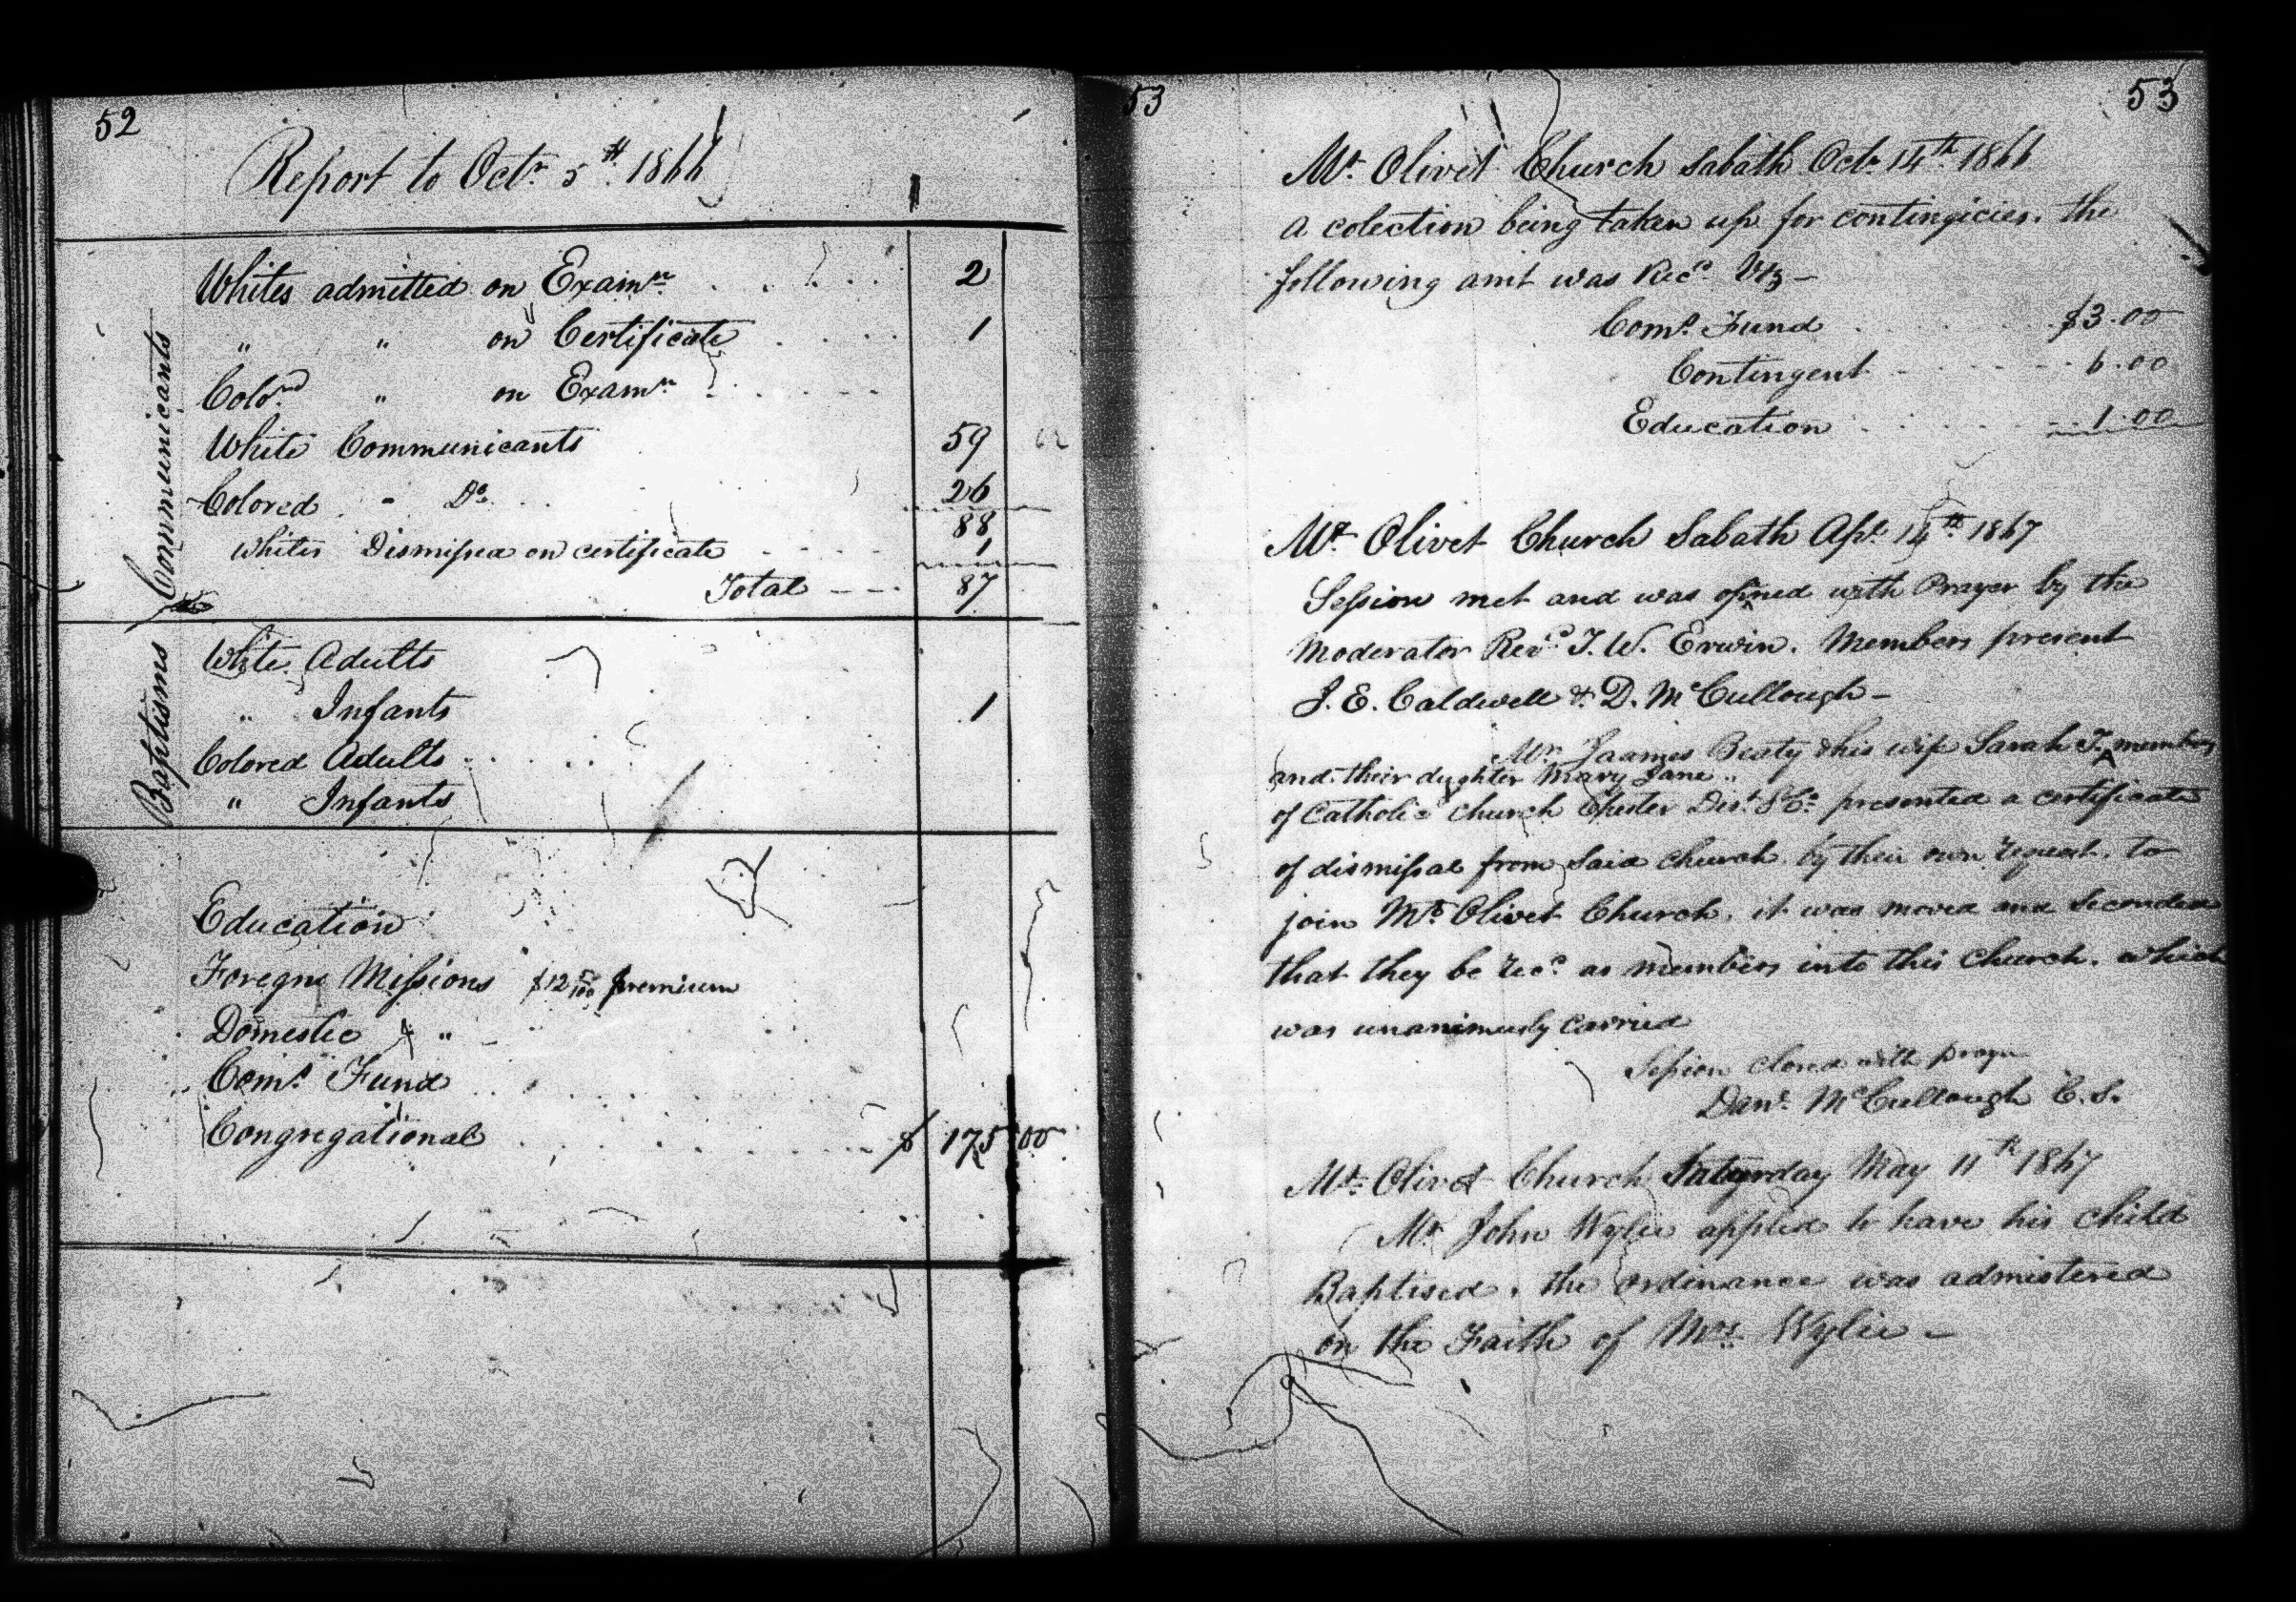 52
Report to Octr 5th 1866
Communicants
Whites admitted on Examn 2
" " on Certificate 1
Colord " on Examn
White Communicants 59 62
Colored - Do 26
88
Whites Dismissed on certificate 1
Total 87
Baptisms
White Adults
" Infants 1
Colored Adults
" Infants
Education
Foregn Missions $12 50/100 premium
Domestic "
Coms Fund
Congregational $ 175 00
53
53
Mt Olivet Church Sabath Octr 14th 1866
a colection being taken up for contingicies. the
following amt was Recd Viz —
Coms Fund $3.00
Contingent 6.00
Education 1.00
Mt Olivet Church Sabath Apl 14th 1867
Session met and was opned with Prayer by the
Moderator Revd T. W. Erwin. Members present
J. E. Caldwell & D. McCullough —
Mr Jaames Beaty & his wife Sarah T. members
and their dughter Mary Jane "
of Catholic Church Chester Dist So Ca presented a certificate
of dismissal from said church by their own request. to
join Mt Olivet Church. it was moved and Seconded
that they be recd as members into this Church. which
was unanimusly carried
Session closed with prayer
Danl McCullough C. S.
Mt Olivet Church Saturday May 11th 1867
Mr John Wylie applied to have his child
Baptised. the ordinance was admistered
on the Faith of Mrs Wylie —